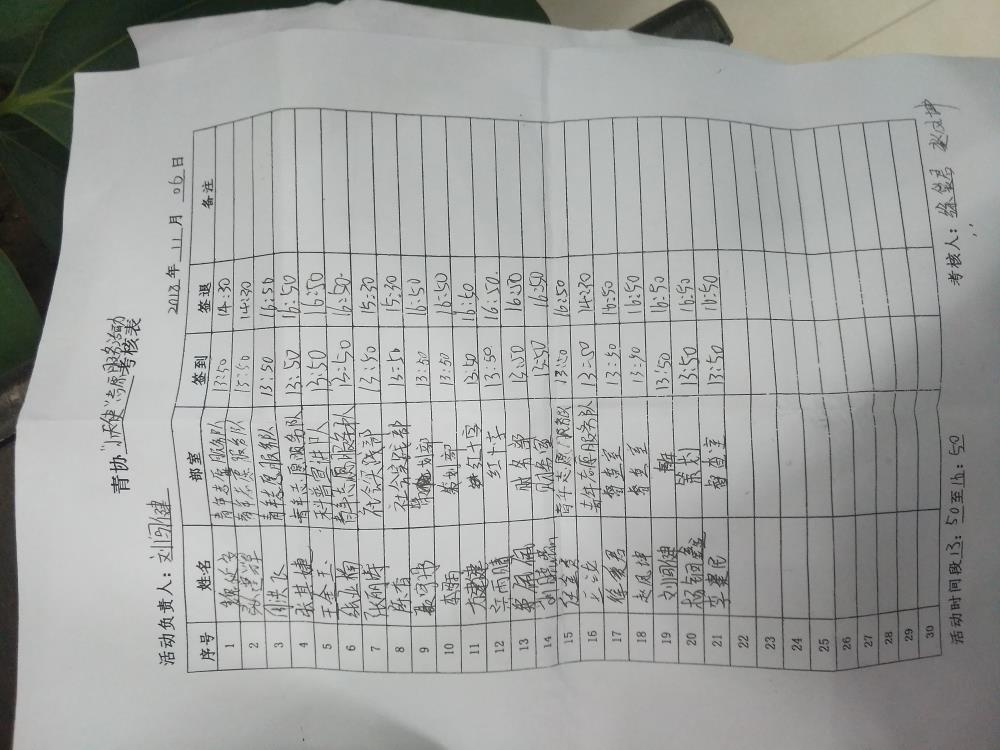 青协"小天使"志愿服务活动
考核表
活动负责人：刘闯健 2018年 11 月 06 日
序号 姓名 部室 签到 签退 备注
1 青年志愿服务队 13:50 14:30
2 青年志愿服务队 13:50 14:30
3 周洪飞 青年志愿服务队 13:50 16:50
4 张其捷 青年志愿服务队 13:50 16:50
5 王金玉 科普宣传队 13:50 16:50
6 张业梅 青年志愿服务队 13:50 16:50
7 张丽晖 社会实践部 13:50 15:30
8 社会实践部 13:50 15:30
9 策划部 13:50 16:50
10 策划部 13:50 16:50
11 红十字 13:50 16:50
12 江雨晴 红十字 13:50 16:50
13 财务室 13:50 16:50
14 财务室 13:50 16:50
15 青年志愿服务队 13:50 16:50
16 青年志愿服务队 13:50 14:30
17 督查室 13:50 16:50
18 赵凤坤 督查室 13:50 16:50
19 刘闯健 13:50 16:50
20 策划 13:50 16:50
21 李惠民 督查室 13:50 16:50
22
23
24
25
26
27
28
29
30
活动时间段13：50至16：50 考核人： 赵凤坤